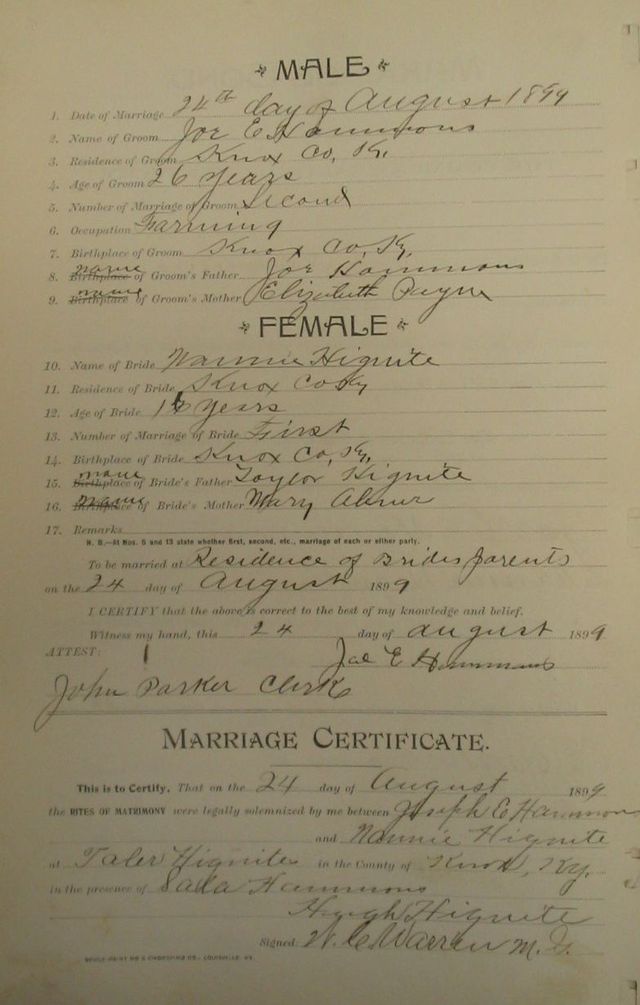 MALE
1. Date of Marriage 24th day of August 1899
2. Name of Groom Joe E Hammons
3. Residence of Groom Knox Co, Ky.
4. Age of Groom 26 years
5. Number of Marriage of Groom Second
6. Occupation Farming
7. Birthplace of Groom Knox Co, Ky.
8. Birthplace name of Groom's Father Joe Hammons
9. Birthplace name of Groom's Mother Elizabeth Payne
FEMALE
10. Name of Bride Nannie Hignite
11. Residence of Bride Knox Co Ky
12. Age of Bride years
13. Number of Marriage of Bride First
14. Birthplace of Bride Knox Co, Ky.
15. Birthplace name of Bride's Father Taylor Hignite
16. Birthplace name of Bride's Mother Mary Abner
17. Remarks
N. B.—At Nos. 5 and 13 state whether first, second, etc., marriage of each or either party.
To be married at Residence of Brides parents
on the 24 day of August 1899
I CERTIFY that the above is correct to the best of my knowledge and belief.
Witness my hand, this 24 day of august 1899
ATTEST: Joe E Hammons
John Parker Clerk
MARRIAGE CERTIFICATE.
This is to Certify, That on the 24 day of August 1899
the RITES OF MATRIMONY were legally solemnized by me between Joseph E Hammons
and Nannie Hignite
at Taler Hignites in the County of Knox, Ky.
in the presence of Hammons
Hugh Hignite
Signed W. C. Warren M. G.